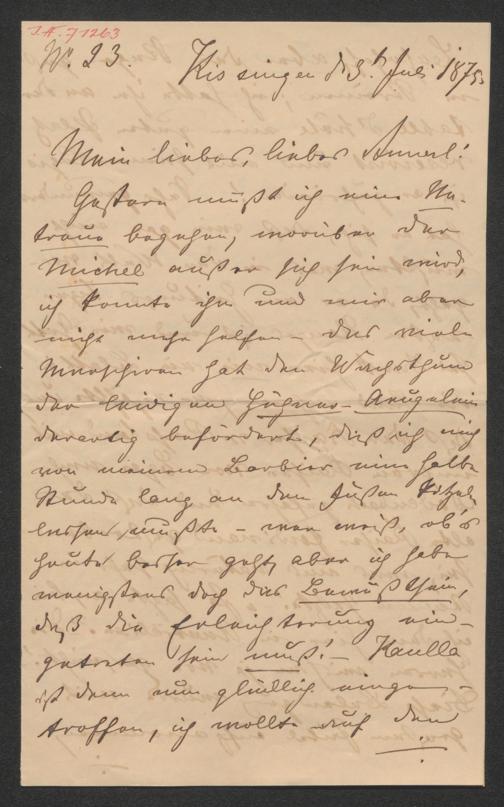 I.N. 71263
Nr. 23. Kissingen d 3t Juli 1875
Mein liebes, liebes Annerl!
Gestern mußt ich eine Un-
treue begehen, worüber der
Michel außer sich sein wird,
ich konnte ihm und mir aber
nicht mehr helfen – das viele
Marschiren hat den Wachsthum
der leidigen Hühner-Aeugelein
derartig befördert, daß ich mich
von meinem Barbier eine halbe
Stunde lang an den Füßen kitzeln
lassen mußte – wer weiß, ob's
heute besser geht, aber ich habe
wenigstens doch das Bewußtsein,
daß die Erleichterung ein-
getreten sein muß! – Kaulla
ist denn nun glücklich einge-
troffen, ich wollte auf den